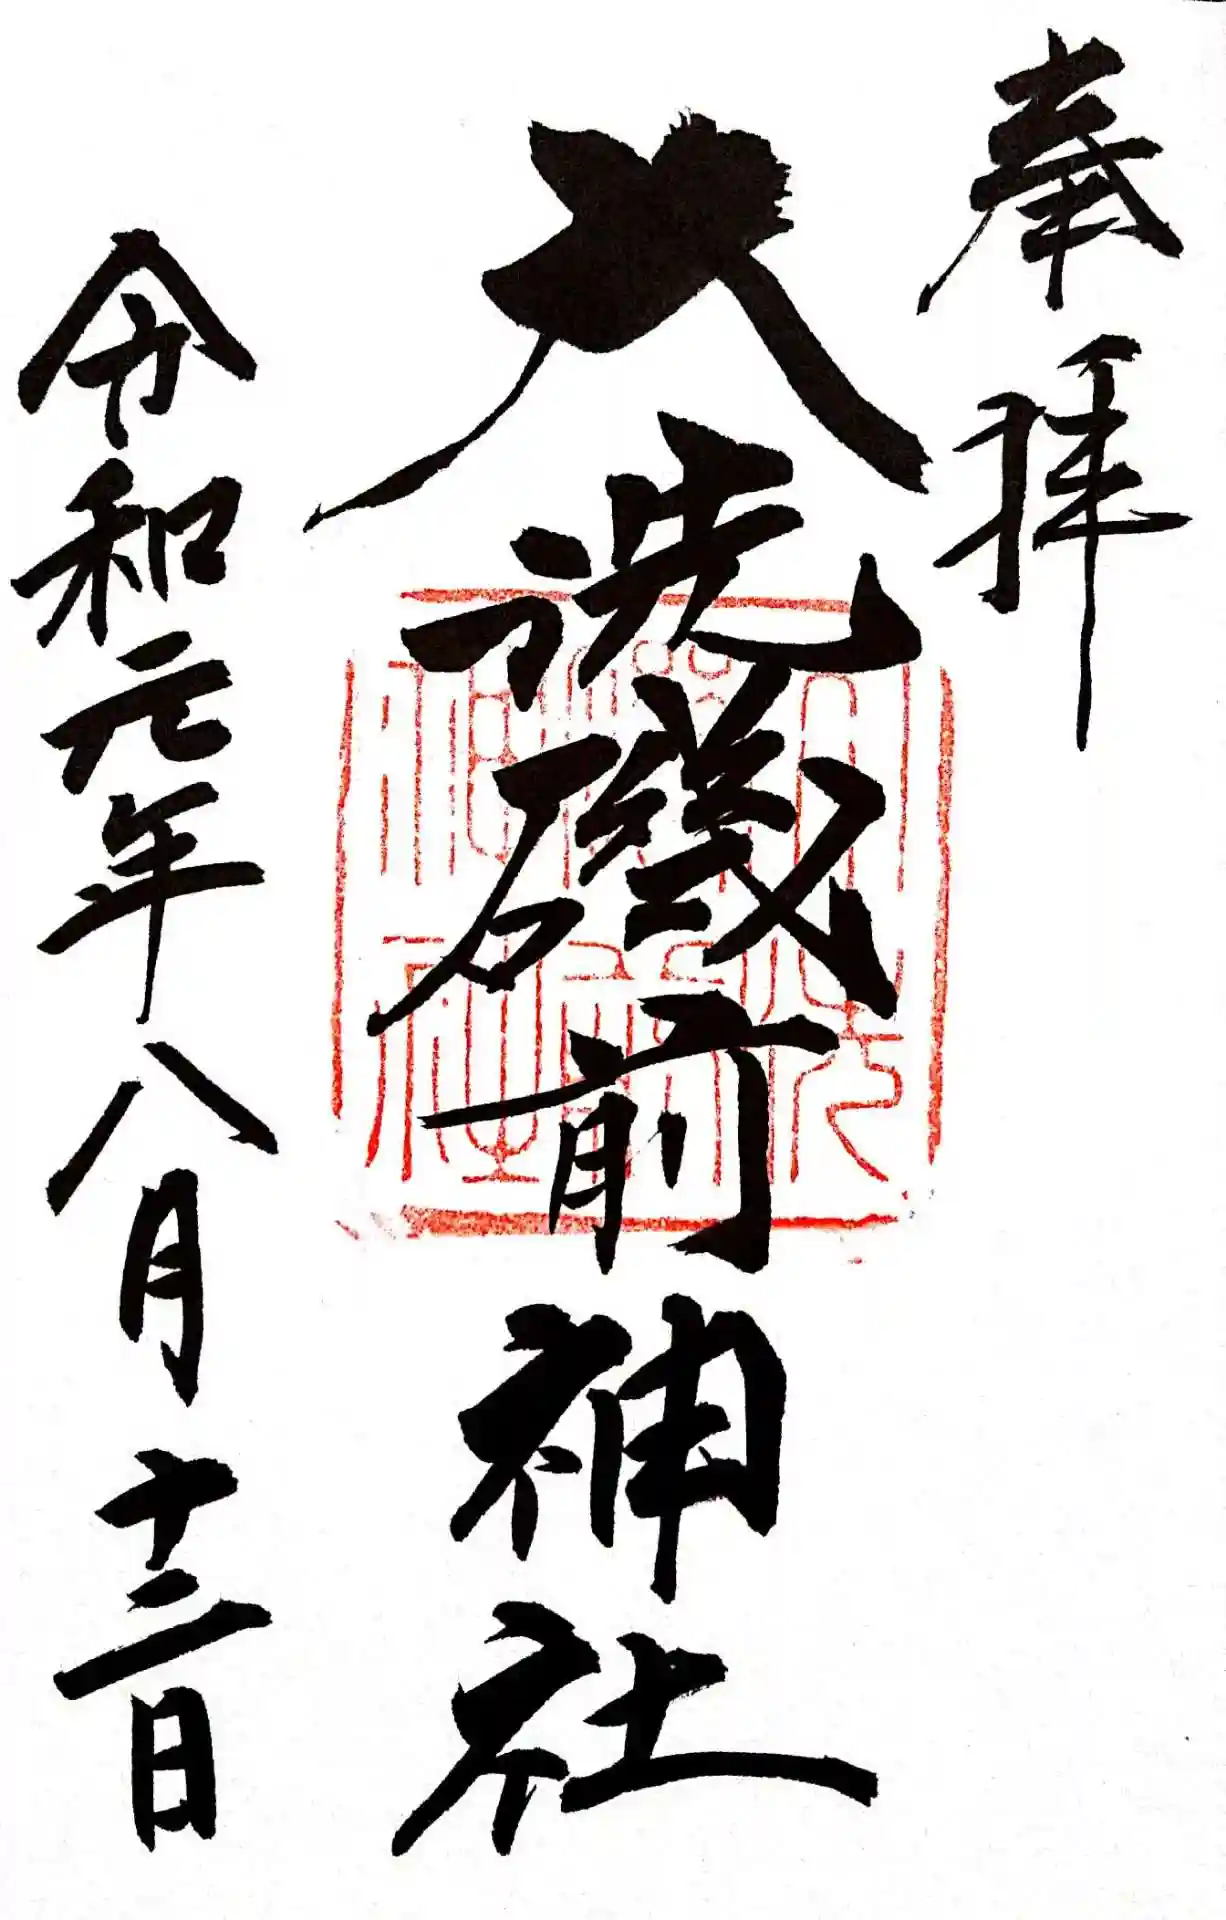 奉拝
大洗磯前神社
令和元年八月十二日